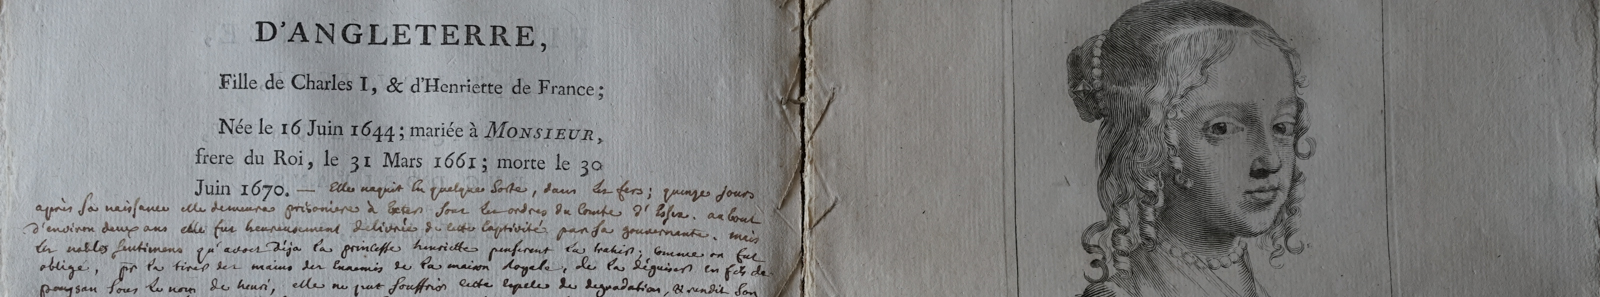 D'ANGLETERRE,
Fille de Charles I, & d'Henriette de France;
Née le 16 Juin 1644; mariée à MONSIEUR,
frere du Roi, le 31 Mars 1661; morte le 30
Juin 1670. — Elle naquit en quelque sorte, dans les fers; quinze jours
après sa naissance elle demeura prisoniere à Exeter sous les ordres du Comte d'Essex. au bout
d'environ deux ans elle fut heureusement délivrée de cette captivité par sa gouvernante. mais
les nobles sentimens qu'avoit déja la princesse henriette penserent la trahir; comme on fut
obligé, pr la tirer des mains des Ennemis de la maison royale, de la déguiser en fils de
paysan sous le nom de henri, elle ne put souffrir cette espece de dégradation, & rendit son